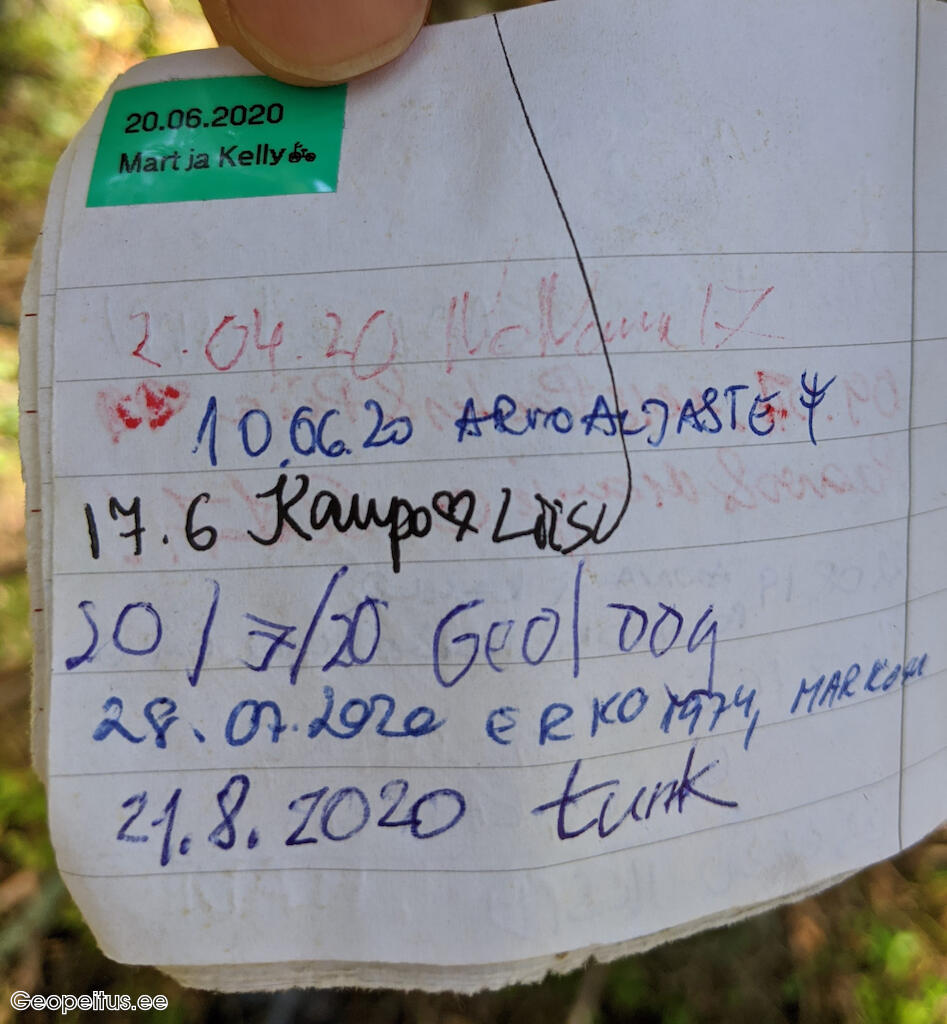 20.06.2020
Mart ja Kelly
2.04.20
10.06.20 ARVO ALJASTE
17.6 Kaupo♡Liisu
20/7/20 Geoloog
28.07.2020 ERKO 1974,
21.8.2020 tunk
Geopeitus.ee